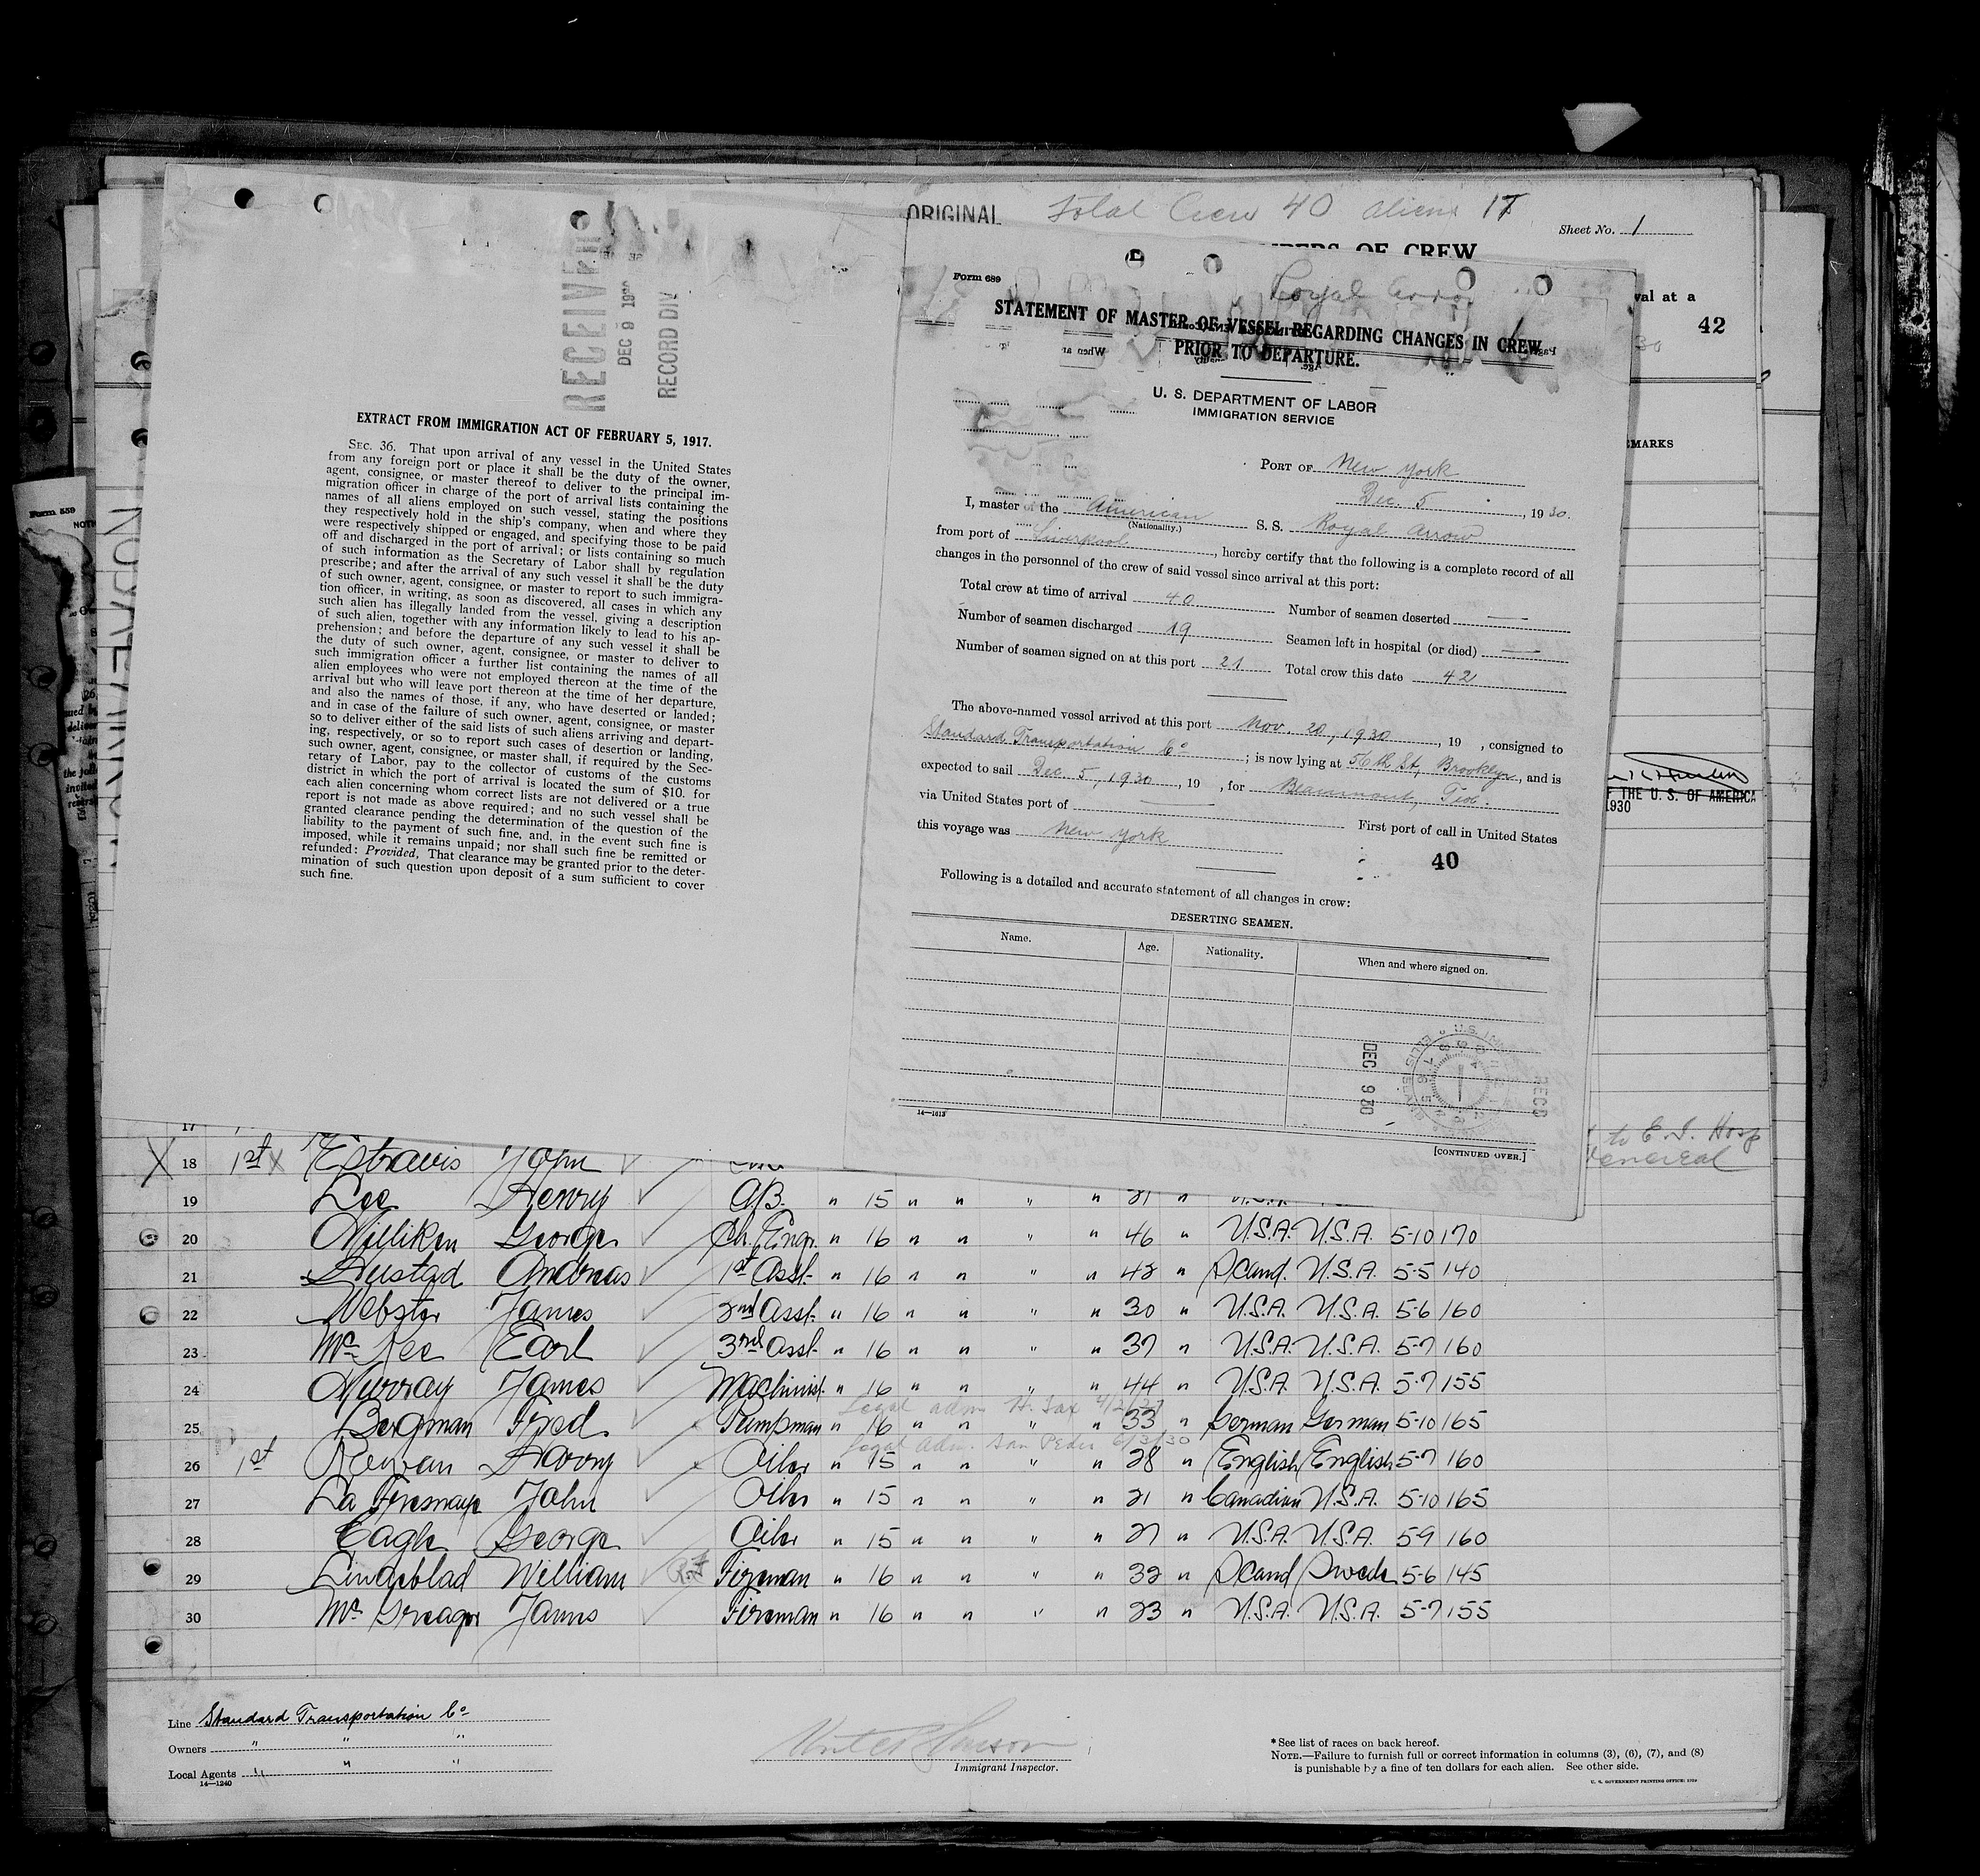 ORIGINAL Total Crew 40 aliens 17
Sheet No. 1
OF CREW
val at a
42
EMARKS
RECEIVED
DEC 9 1930
RECORD DIV
EXTRACT FROM IMMIGRATION ACT OF FEBRUARY 5, 1917.
SEC. 36. That upon arrival of any vessel in the United States
from any foreign port or place it shall be the duty of the owner,
agent, consignee, or master thereof to deliver to the principal im-
migration officer in charge of the port of arrival lists containing the
names of all aliens employed on such vessel, stating the positions
they respectively hold in the ship's company, when and where they
were respectively shipped or engaged, and specifying those to be paid
off and discharged in the port of arrival; or lists containing so much
of such information as the Secretary of Labor shall by regulation
prescribe; and after the arrival of any such vessel it shall be the duty
of such owner, agent, consignee, or master to report to such immigra-
tion officer, in writing, as soon as discovered, all cases in which any
such alien has illegally landed from the vessel, giving a description
of such alien, together with any information likely to lead to his ap-
prehension; and before the departure of any such vessel it shall be
the duty of such owner, agent, consignee, or master to deliver to
such immigration officer a further list containing the names of all
alien employees who were not employed thereon at the time of the
arrival but who will leave port thereon at the time of her departure,
and also the names of those, if any, who have deserted or landed;
and in case of the failure of such owner, agent, consignee, or master
so to deliver either of the said lists of such aliens arriving and depart-
ing, respectively, or so to report such cases of desertion or landing,
such owner, agent, consignee, or master shall, if required by the Sec-
retary of Labor, pay to the collector of customs of the customs
district in which the port of arrival is located the sum of $10. for
each alien concerning whom correct lists are not delivered or a true
report is not made as above required; and no such vessel shall be
granted clearance pending the determination of the question of the
liability to the payment of such fine, and, in the event such fine is
imposed, while it remains unpaid; nor shall such fine be remitted or
refunded: Provided, That clearance may be granted prior to the deter-
mination of such question upon deposit of a sum sufficient to cover
such fine.
Form 559
Form 689
Royal Arrow
STATEMENT OF MASTER OF VESSEL REGARDING CHANGES IN CREW
PRIOR TO DEPARTURE.
U. S. DEPARTMENT OF LABOR
IMMIGRATION SERVICE
PORT OF New York
Dec. 5, 1930.
I, master of the American S. S. Royal Arrow
(Nationality.)
from port of Liverpool, hereby certify that the following is a complete record of all
changes in the personnel of the crew of said vessel since arrival at this port:
Total crew at time of arrival 40 Number of seamen deserted —
Number of seamen discharged 19 Seamen left in hospital (or died) —
Number of seamen signed on at this port 21 Total crew this date 42
The above-named vessel arrived at this port Nov. 20, 1930, 19 , consigned to
Standard Transportation Co; is now lying at 56th St, Brooklyn, and is
expected to sail Dec 5, 1930, 19 , for Beaumont, Tex.
via United States port of — First port of call in United States
this voyage was New York
40
Following is a detailed and accurate statement of all changes in crew:
DESERTING SEAMEN.
Name. Age. Nationality. When and where signed on.
DEC 9 30
RECD
14—1613
[CONTINUED OVER.]
F THE U. S. OF AMERICA
1930
to E. I. Hosp
Venereal
17
X 18 1st X Estravis John
19 Lee Henry AB. " 15 " " " " 21 "
20 Milliken George Ch. Engr. " 16 " " " " 46 " U.S.A. U.S.A. 5-10 170
21 Hustad Andreas 1st Asst. " 16 " " " " 42 " Scand. U.S.A. 5-5 140
22 Webster James 2nd Asst. " 16 " " " " 30 " U.S.A. U.S.A. 5-6 160
23 McKee Earl 3rd Asst. " 16 " " " " 37 " U.S.A. U.S.A. 5-7 160
24 Murray James Machinist. " 16 " " " " 44 " U.S.A. U.S.A. 5-7 155
Legal adm
25 Bergman Fred Pumpman " 16 " " " " 33 " German German 5-10 165
Legal Adm. San Pedro 6/3/30
26 1st Rewan Harry Oiler " 15 " " " " 28 " English English 5-7 160
27 La Fresnaye John Oiler " 15 " " " " 21 " Canadian U.S.A. 5-10 165
28 Eagle George Oiler " 15 " " " " 27 " U.S.A. U.S.A. 5-9 160
29 Lindeblad William Fireman " 16 " " " " 32 " Scand Swede 5-6 145
30 McGreagor James Fireman " 16 " " " " 23 " U.S.A. U.S.A. 5-7 155
Line Standard Transportation Co
Owners " " "
Local Agents " " "
14—1240
Immigrant Inspector.
* See list of races on back hereof.
NOTE.—Failure to furnish full or correct information in columns (3), (6), (7), and (8)
is punishable by a fine of ten dollars for each alien. See other side.
U. S. GOVERNMENT PRINTING OFFICE: 1929